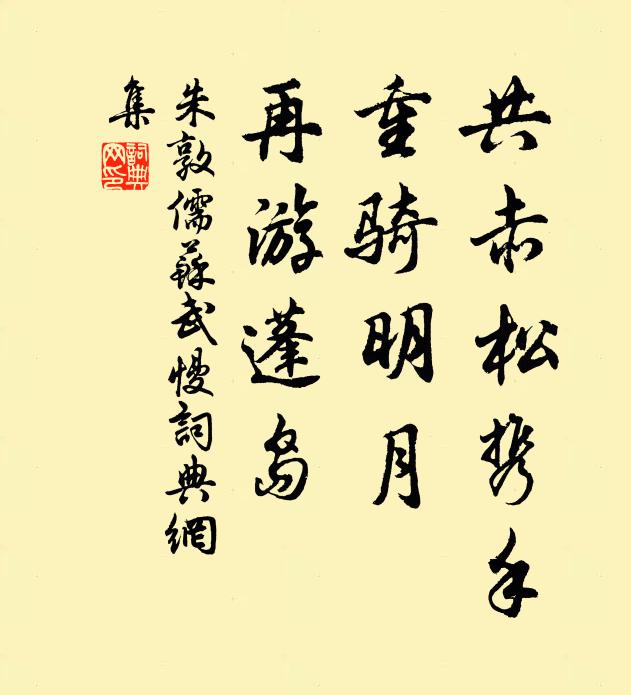 共赤松携手
重骑明月
再游蓬岛
朱敦儒蘇武慢詞典網
集
詞典
网印